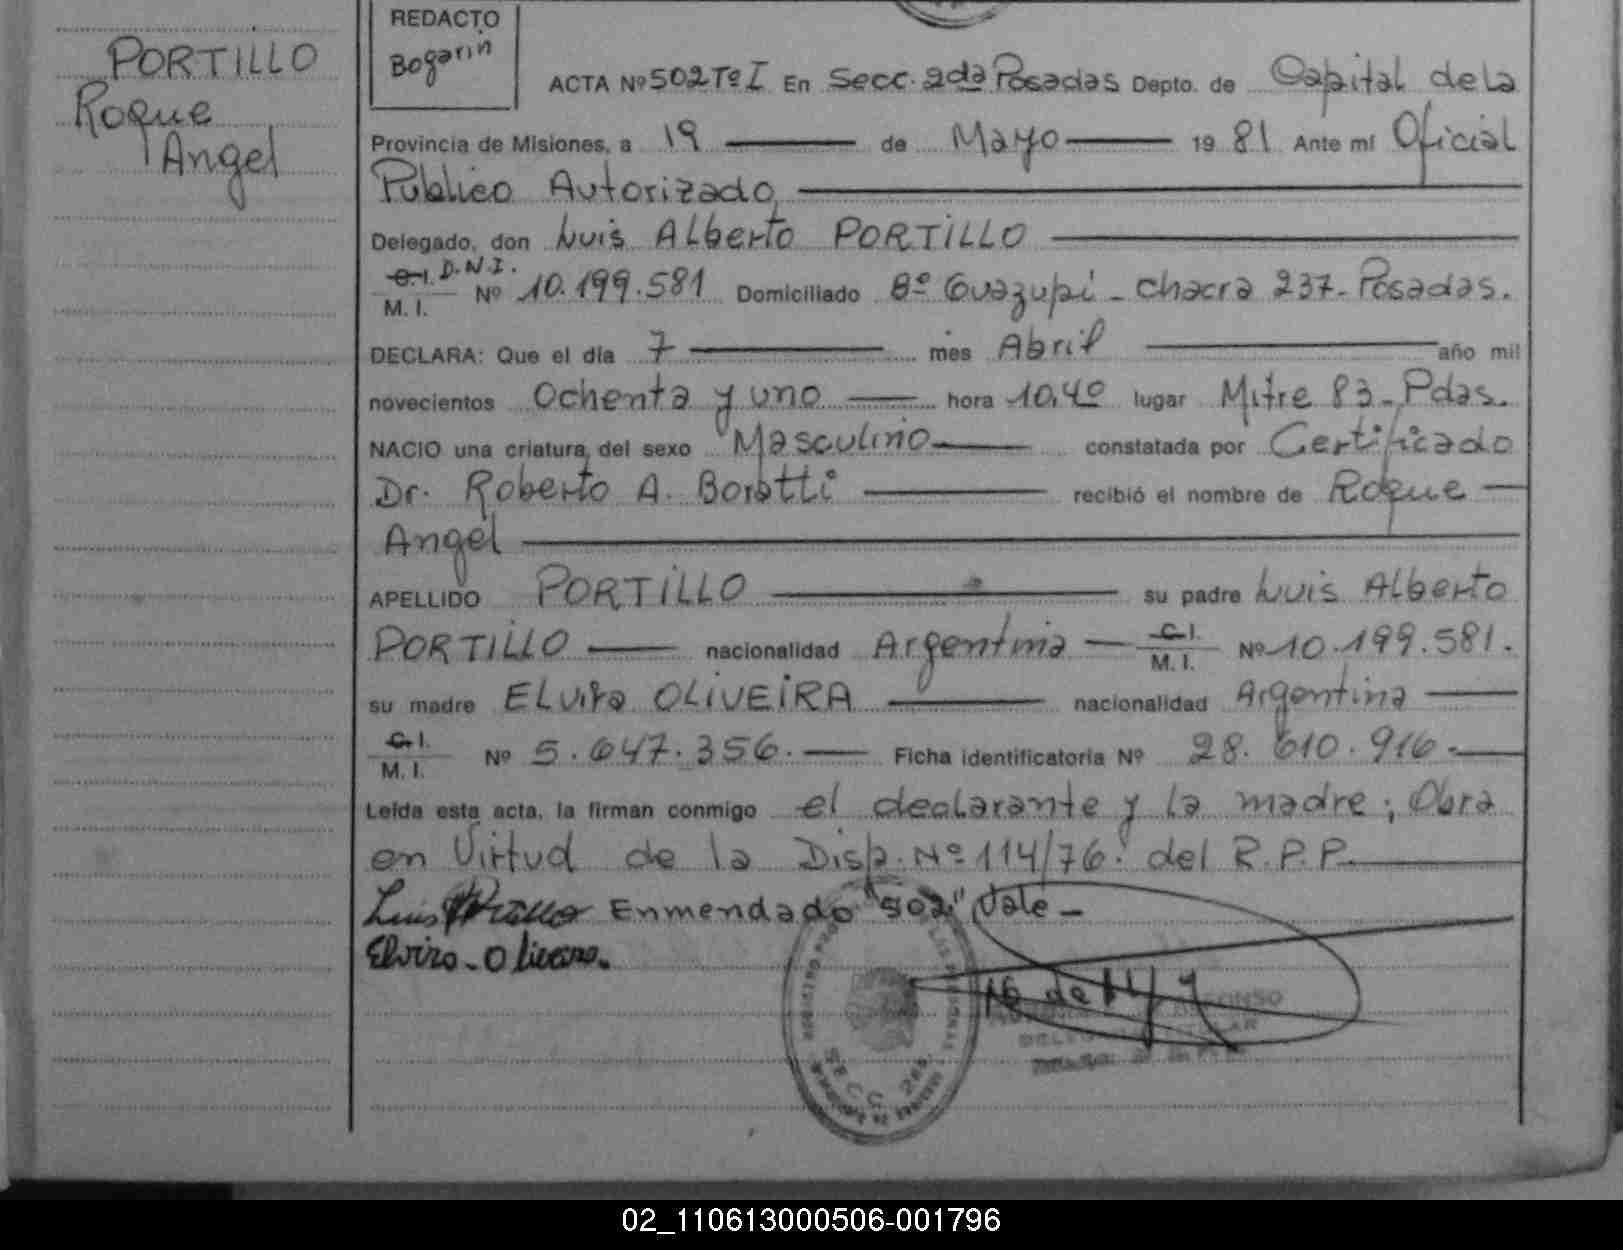 PORTILLO
Roque
Angel
REDACTO
Bogarin
ACTA Nº 502 Tº I En Secc. 2da Posadas Depto. de Capital de la
Provincia de Misiones, a 19 de Mayo 19 81 Ante mí Oficial
Público Autorizado
Delegado, don Luis Alberto PORTILLO
C.I. D.N.I.
M. I. Nº 10.199.581 Domiciliado Bº Guazupi - chacra 237 - Posadas.
DECLARA: Que el día 7 mes Abril año mil
novecientos Ochenta y uno hora 10,40 lugar Mitre 83 - Pdas.
NACIO una criatura del sexo Masculino constatada por Certificado
Dr. Roberto A. Boratti recibió el nombre de Roque
Angel
APELLIDO PORTILLO su padre Luis Alberto
PORTILLO nacionalidad Argentina C.I. M. I. Nº 10.199.581.
su madre ELvira OLIVEIRA nacionalidad Argentina
C.I. M. I. Nº 5.647.356. Ficha identificatoria Nº 28.610.916.
Leída esta acta, la firman conmigo el declarante y la madre; Obra
en Virtud de la Disp. Nº 114/76. del R.P.P.
Luis Portillo Enmendado "502" Vale -
SECC. 2da
02_110613000506-001796